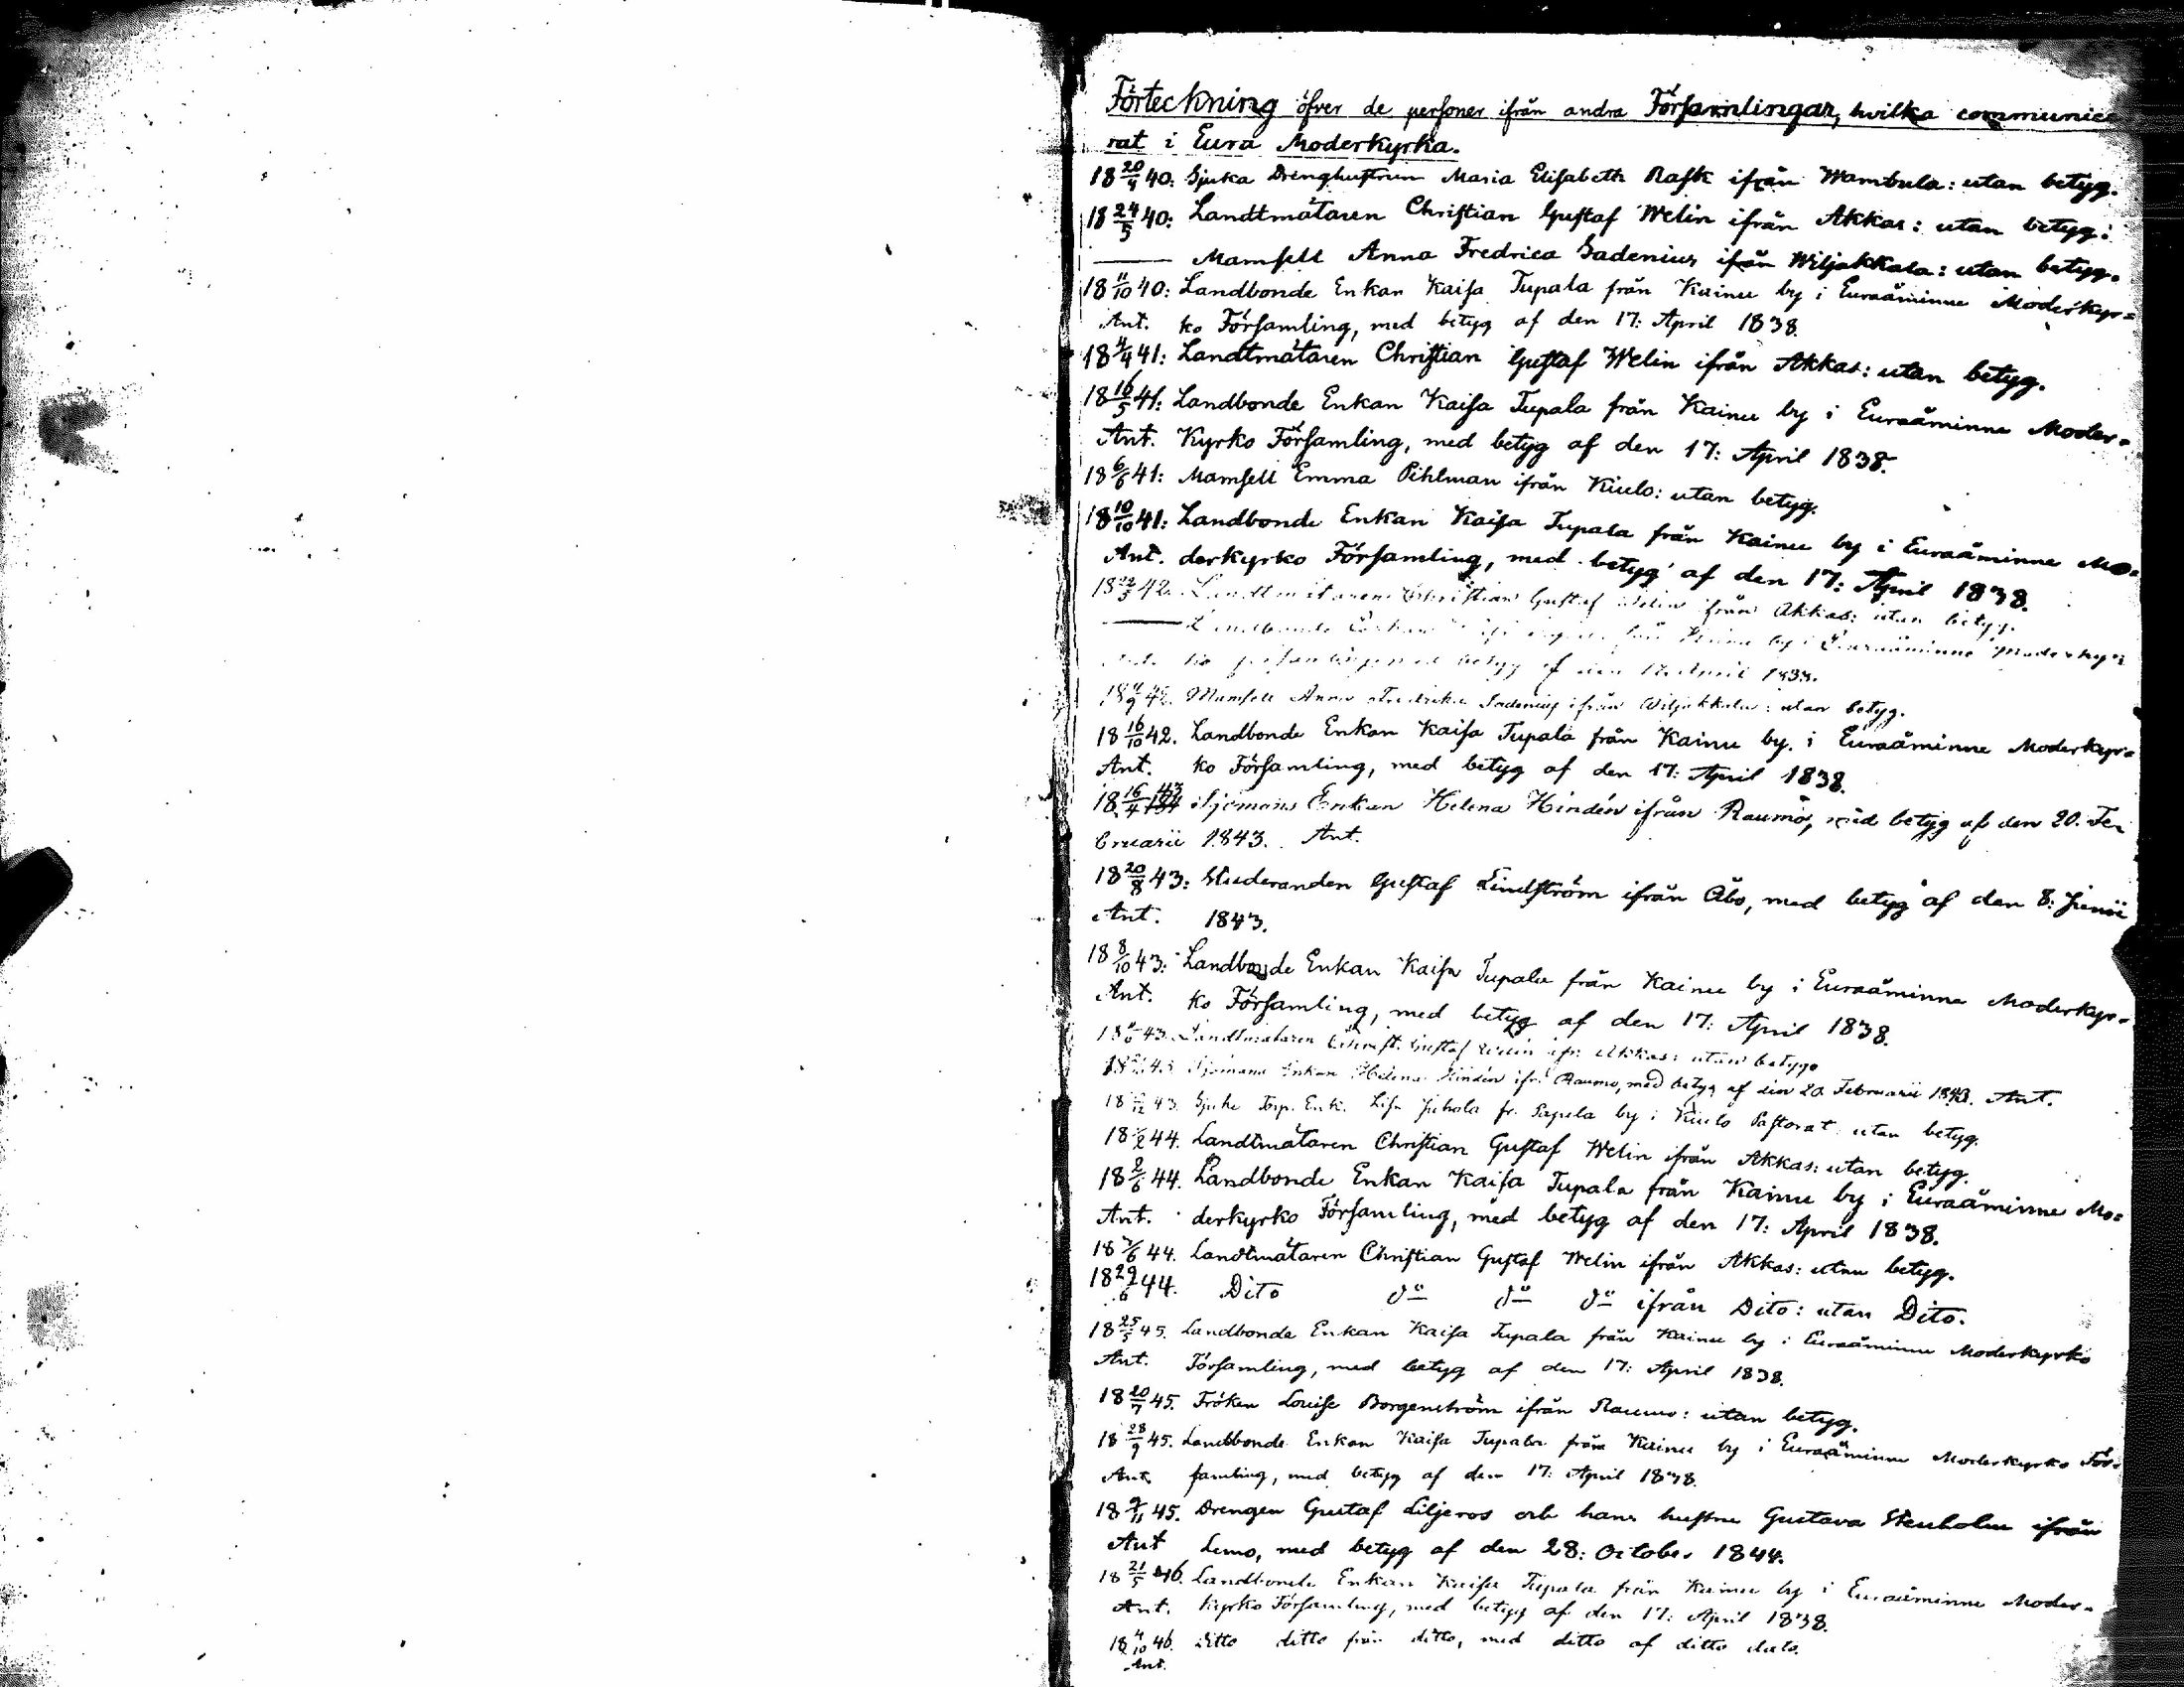 Förteckning öfver de personer ifrån andra Församlingar, hvilka communice
rat i Eura Moderkyrka.
18 20/4 40: Sjuka Drenghustrun Maria Elisabeth Rask ifrån Wambula: utan betyg.
18 24/5 40: Landtmätaren Christian Gustaf Welin ifrån Akkas: utan betyg.
Mamsell Anna Fredrica Sadenius ifrån Wiljakkala: utan betyg.
18 11/10 40: Landbonde Enkan Kaisa Tupala från Kainu by i Euraåminne Moderkyr=
Ant. ko Församling, med betyg af den 17: April 1838.
18 4/4 41: Landtmätaren Christian Gustaf Welin ifrån Akkas: utan betyg.
18 16/5 41: Landbonde Enkan Kaisa Tupala från Kainu by i Euraåminne Moder=
Ant. Kyrko Församling, med betyg af den 17: April 1838.
18 6/6 41: Mamsell Emma Pihlman ifrån Kiulo: utan betyg.
18 10/10 41: Landbonde Enkan Kaisa Tupala från Kainu by i Euraåminne Mo=
Ant. derkyrko Församling, med betyg af den 17: April 1838.
42. Landtmätaren Christian Gustaf Welin ifrån Akkas: utan betyg.
Landbonde Enkan från Kainu by i Euraåminne Moderkyr
ko församlingen med betyg af den 17 April 1838.
Mamsell Anna Fredrika Sadenius ifrån Wiljakkala: utan betyg.
18 16/10 42. Landbonde Enkan Kaisa Tupala från Kainu by i Euraåminne Moderkyr=
Ant. ko Församling, med betyg af den 17: April 1838.
18 16/4 43 Sjömans Enkan Helena Hindén ifrån Raumo, med betyg af den 20. Fe=
bruarii 1843. Ant.
18 20/8 43: Studeranden Gustaf Lindström ifrån Åbo, med betyg af den 8: Junii
Ant. 1843.
18 8/10 43: Landbonde Enkan Kaisa Tupala från Kainu by i Euraåminne Moderkyr=
Ant. ko Församling, med betyg af den 17: April 1838.
43. Landtmätaren Christ. Gustaf Welin ifr. Akkas: utan betyg.
43 Sjömans Enkan Helena Hindén ifr. Raumo, med betyg af den 20 Februarii 1843. Ant.
43. Sjuke Torp. Enk. Lisa Juhola fr. by i Kiulo Pastorat utan betyg.
44. Landtmätaren Christian Gustaf Welin ifrån Akkas: utan betyg.
18 2/6 44. Landbonde Enkan Kaisa Tupala från Kainu by i Euraåminne Mo=
Ant. derkyrko Församling, med betyg af den 17: April 1838.
44. Landtmätaren Christian Gustaf Welin ifrån Akkas: utan betyg.
18 29/6 44. Dito do do do ifrån Dito: utan Dito.
18 25/5 45. Landbonde Enkan Kaisa Tupala från Kainu by i Euraåminne Moderkyrko
Ant. Församling, med betyg af den 17: April 1838.
18 20/7 45. Fröken Louise Borgenström ifrån Raumo: utan betyg.
18 28/9 45. Landbonde Enkan Kaisa Tupala från Kainu by i Euraåminne Moderkyrko För=
Ant. samling, med betyg af den 17: April 1838.
18 9/11 45. Drengen Gustaf Liljeros och hans hustru Gustava Stenholm ifrån
Ant Lemo, med betyg af den 28: October 1844.
18 21/5 46. Landbonde Enkan Kaisa Tupala från Kainu by i Euraåminne Moder=
Ant. kyrko Församling, med betyg af den 17: April 1838.
18 4/10 46. Ditto ditto från ditto, med ditto af ditto dato.
Ant.